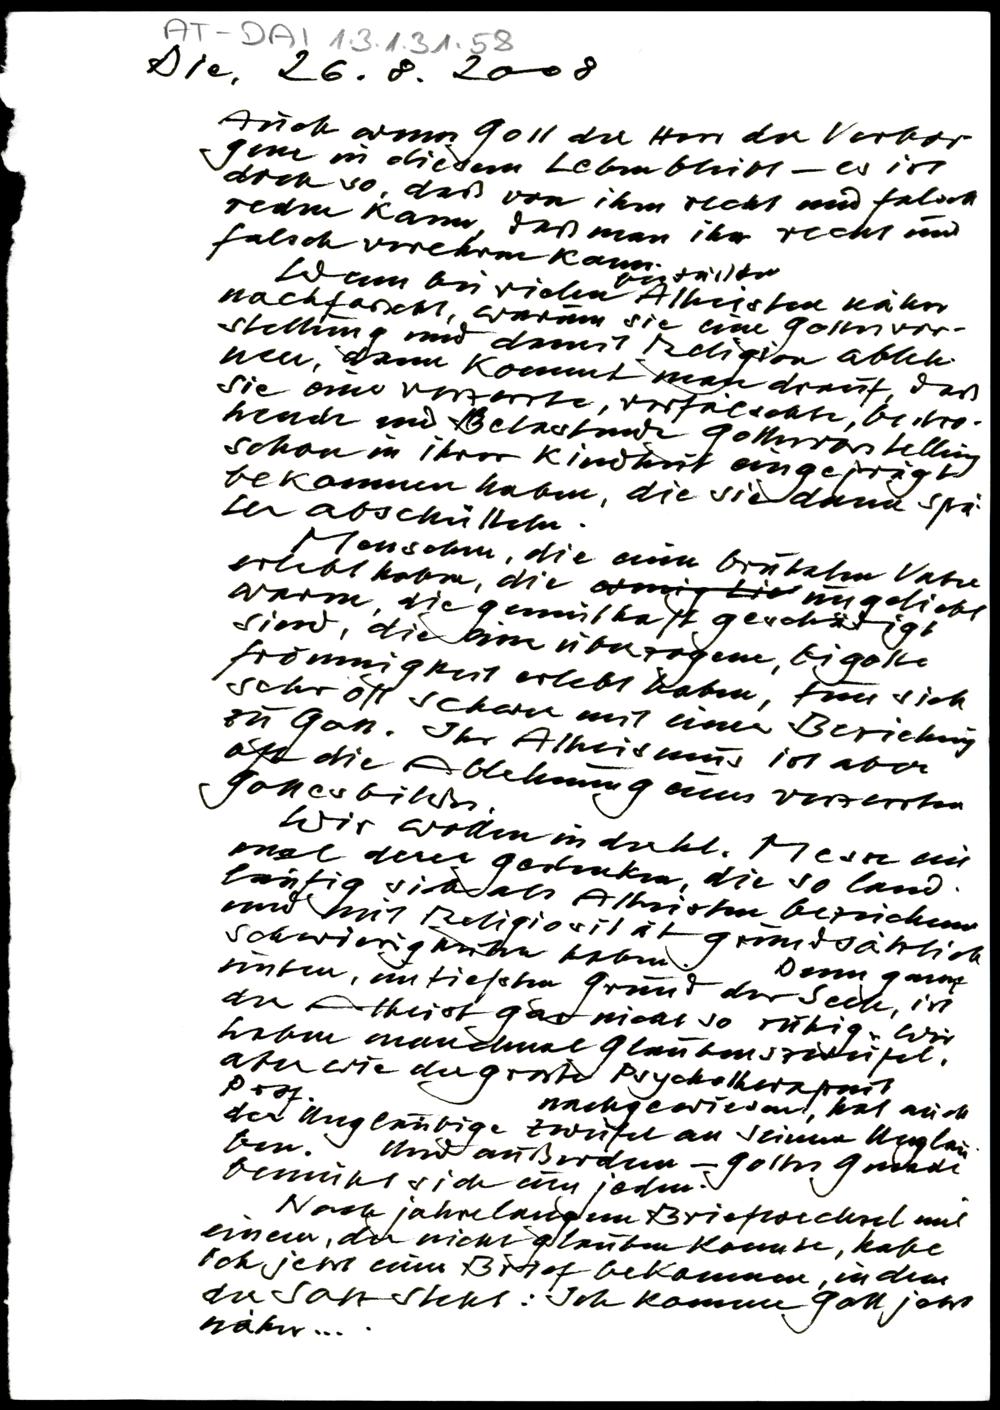 AT-DAI 1.3.1.31.58
Die, 26. 8. 2008
Auch wenn Gott der Herr der Verbor-
gene in diesem Leben bleibt – es ist
doch so, daß von ihm recht und falsch
reden kann, daß man ihn recht und
falsch verehren kann.
Wenn bei vielen Atheisten näher
nachforscht, warum sie eine Gottesvor-
stellung und damit Religion ableh-
nen, dann kommt man drauf, daß
sie eine verzerrte, verfälschte, bedro-
hende und Belastende Gottesvorstellung
schon in ihrer Kindheit eingeprägt
bekommen haben, die sie dann spä-
ter abschütteln.
Menschen, die einen brutalen Vater
erlebt haben, die ungeliebt
waren, die gemüthaft geschädigt
sind, die eine überzogene, bigotte
Frömmigkeit erlebt haben, tun sich
sehr oft schwer mit einer Beziehung
zu Gott. Ihr Atheismus ist aber
oft die Ablehnung eines verzerrten
Gottesbildes.
Wir wollen in der hl. Messe ein
mal derer gedenken, die so land-
läufig sich als Atheisten bezeichnen
und mit Religiosität grundsätzlich
Schwierigkeiten haben. Denn ganz
unten, im tiefsten Grund der Seele, ist
der Atheist gar nicht so ruhig. Wir
haben manchmal Glaubenszweifel.
aber wie der große Psychotherapeut
Prof. nachgewiesen, hat auch
der Ungläubige Zweifel an seinem Unglau-
ben. Und außerdem – Gottes Gnade
bemüht sich um jeden.
Nach jahrelangem Briefwechsel mit
einem, der nicht glauben konnte, habe
ich jetzt einen Brief bekommen, in dem
der Satz steht: Ich komme Gott jetzt
näher... .